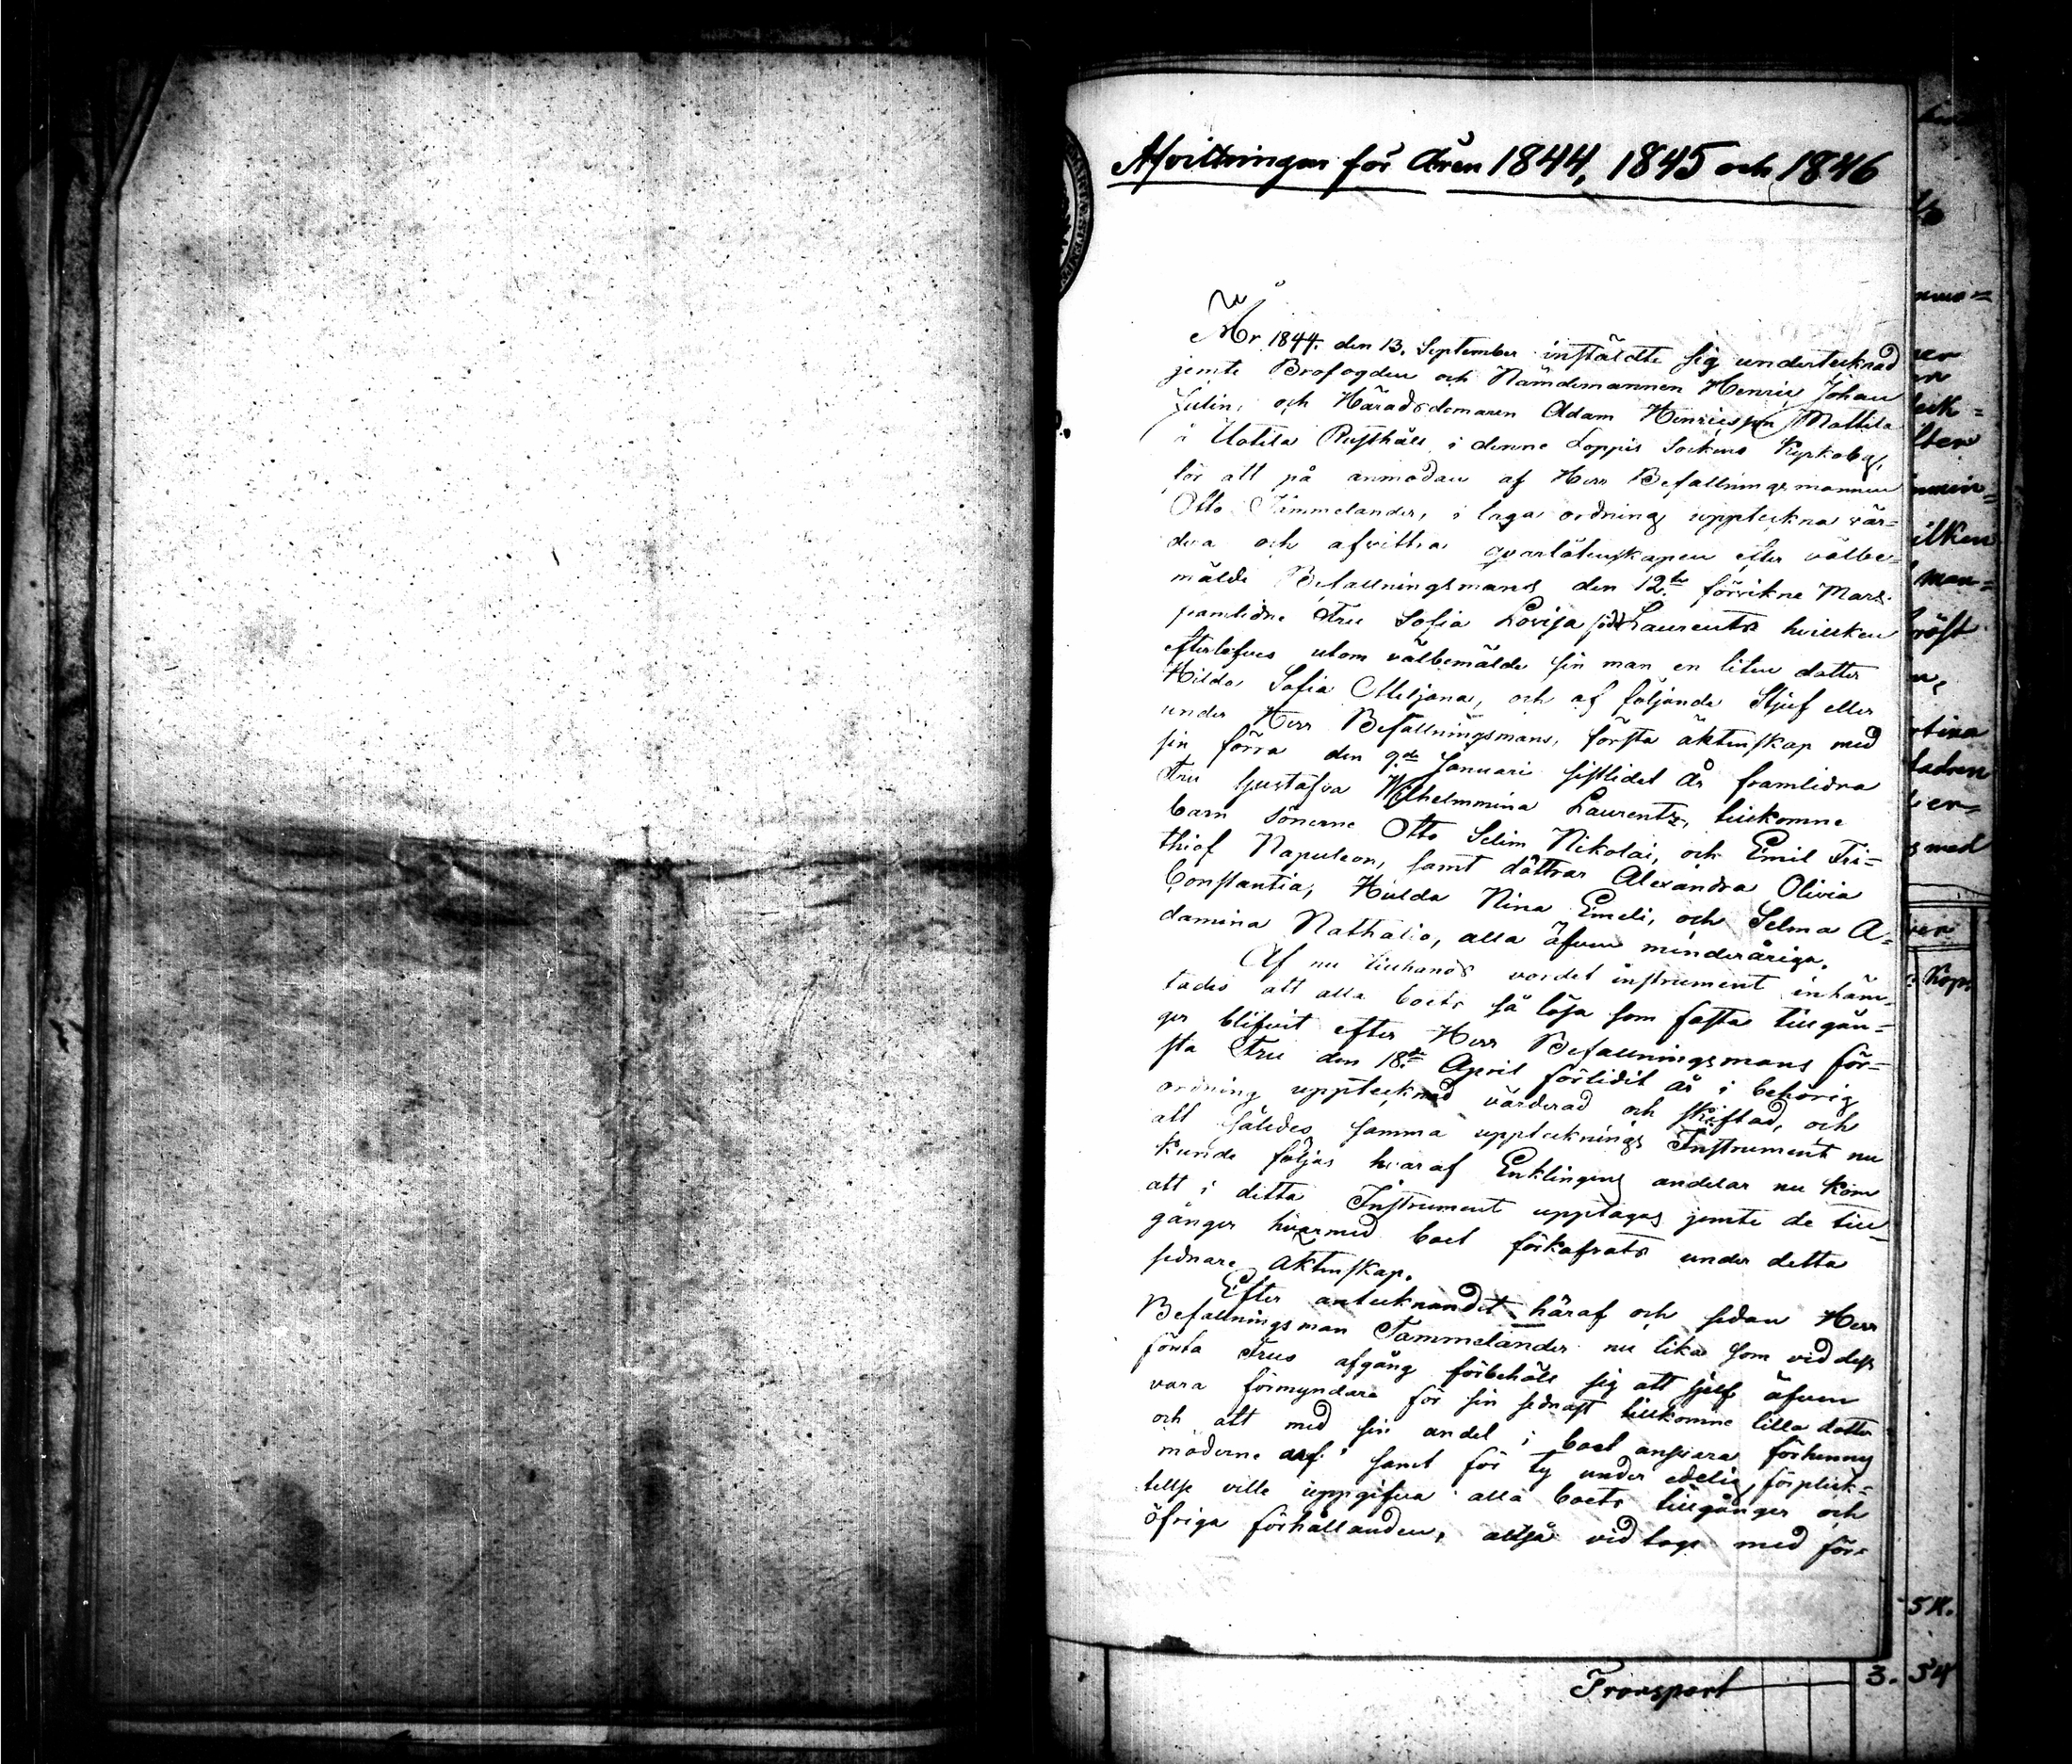 Afvittringar för Åren 1844, 1845 och 1846
År 1844. den 13. September instäldte sig undertecknad
jemte Brofogden och Nämdemannen Henric Johan
Julin, och Häradsdomaren Adam Henricsson Mattila
i Uotila Rusthåll i denne Loppis Sockens Kyrkoby,
för att på anmodan af Herr Befallningsmannen
Otto Tammelander, i laga ordning uppteckna vär-
dera och afvittra qvarlåtenskapen efter välbe-
mälde Befallningsmans den 12te förvikne Mars
framlidne Fru Sofia Lovisa född Laurentz hvilken
efterlefves utom välbemälde sin man en liten dotter
Hilda Sofia Miljana, och af följande Stjuf eller
under Herr Befallningsmans, första äktenskap med
sin förra den 9de Januari sistlidet År framlidna
Fru Gustafva Wilhelmmina Laurentz, tillkomne
barn sönerne Otto Selim Nikolai, och Emil Fri-
thiof Napuleon, samt döttrar Alexandra Olivia
Constantia, Hulda Nina Emeli, och Selma A-
damina Nathalia, alla äfven minderåriga.
Af nu tillhands vordet instrument inhäm-
tades att alla boets så lösa som fasta tillgån-
ger blifvit efter Herr Befallningsmans för-
sta Fru den 18de April förlidit år i behörig
ordning upptecknad värderad och skiftad, och
att således samma upptecknings Instrument nu
kunde följas hvaraf Enklingens andelar nu kom
att i detta Instrument upptagas jemte de till-
gångar hvarmed boet förkofrats under detta
sednare äktenskap.
Efter antecknandet häraf och sedan Herr
Befallningsman Tammelander nu lika som vid dess
första Frus afgång förbehöll sig att sjelf äfven
vara förmyndare för sin sednast tillkomne lilla dotter
och att med sin andel i boet ansvara för hennes
möderne arf samt för ty under edelig förplick-
telse ville uppgifva alla boets tillgångar och
öfriga förhållanden, altså vidtogs med för-
Transport 3. 54